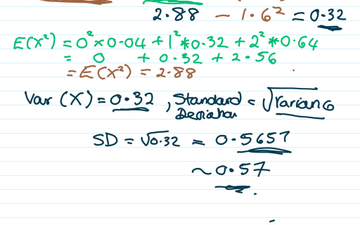 2.88 - 1.6² = 0.32
E(X²) = 0² × 0.04 + 1² * 0.32 + 2² * 0.64
= 0 + 0.32 + 2.56
= E(X²) = 2.88
Var (X) = 0.32, Standard Deviation = √variance
SD = √0.32 = 0.5657
~ 0.57